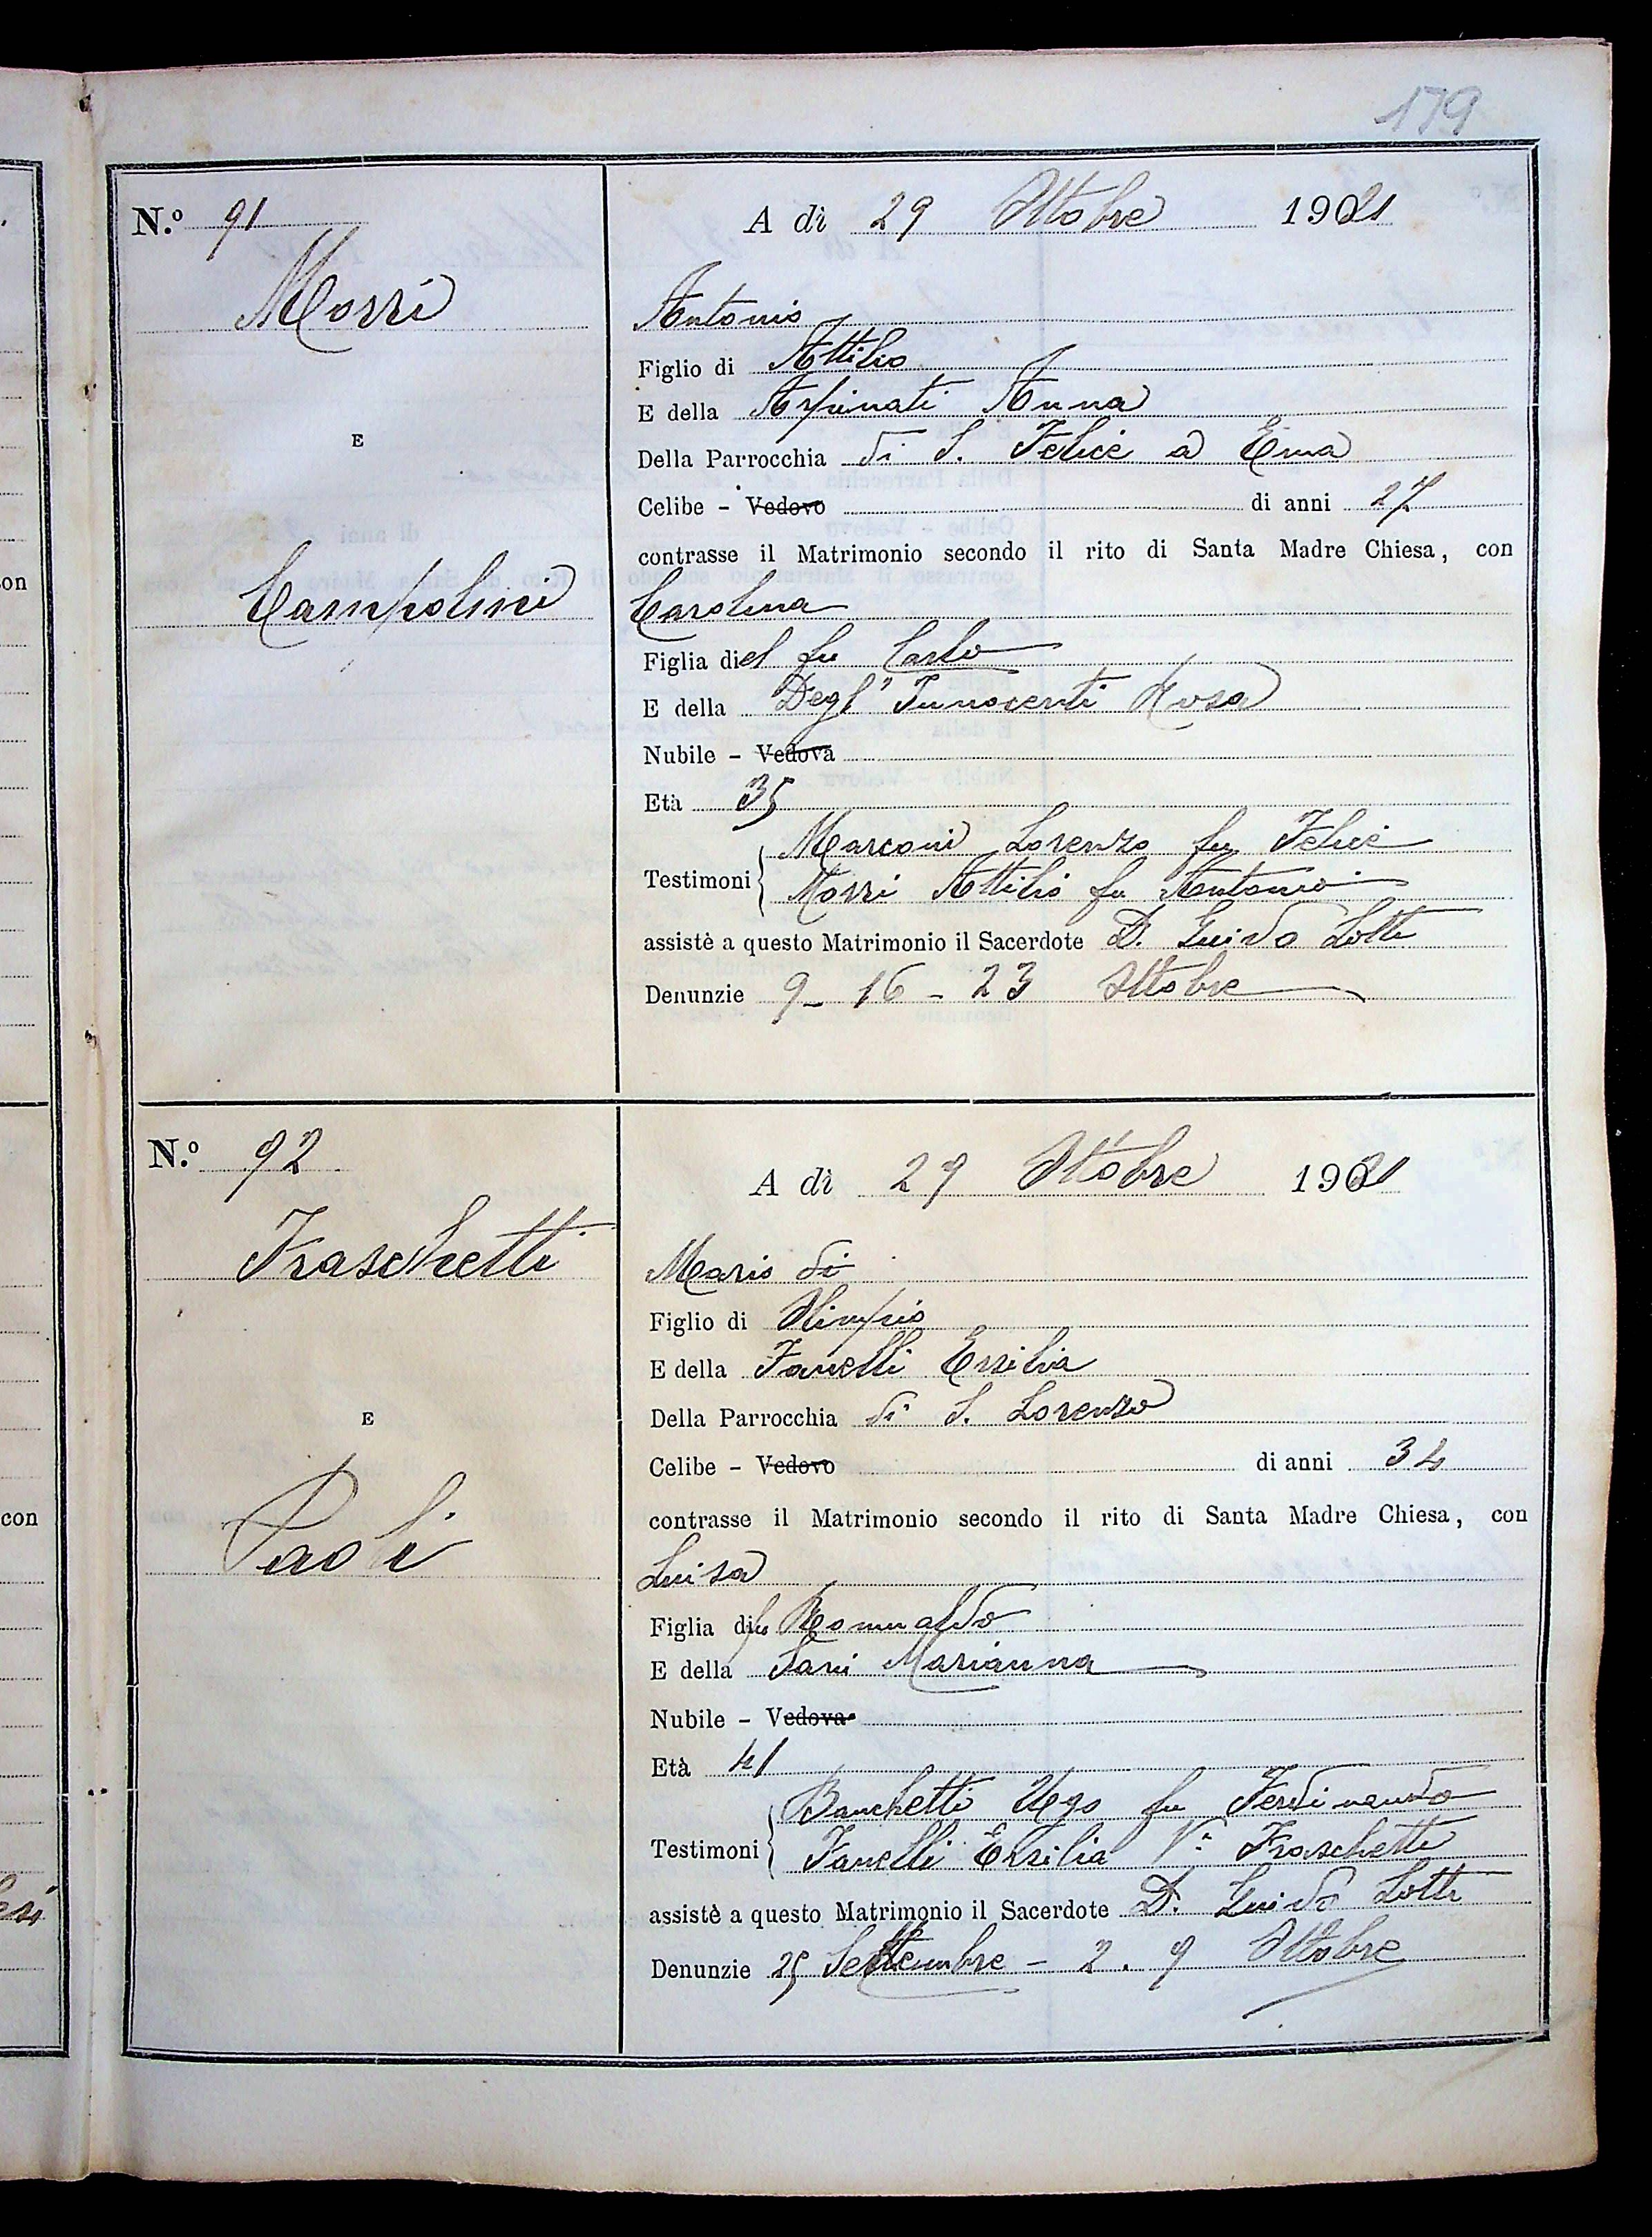 179
N.º 91
A dì 29 Ottobre 1921
Morri
Antonio
Figlio di Attilio
E della Arfinati Anna
E
Della Parrocchia di S. Felice a Ema
Celibe - Vedovo di anni 27
contrasse il Matrimonio secondo il rito di Santa Madre Chiesa, con
Campolmi
Carolina
Figlia del fu Carlo
E della Degl' Innocenti Rosa
Nubile - Vedova
Età 35
Marconi Lorenzo fu Felice
Testimoni
Morri Attilio fu Antonio
assistè a questo Matrimonio il Sacerdote D. Guido Lotti
Denunzie 9 - 16 - 23 Ottobre
N.º 92
A dì 29 Ottobre 1921
Fraschetti
Mario di
Figlio di Olimpio
E della Fanelli Ersilia
Della Parrocchia di S. Lorenzo
E
Celibe - Vedovo di anni 34
contrasse il Matrimonio secondo il rito di Santa Madre Chiesa, con
Paoli
Luisa
Figlia di fu Romualdo
E della Sani Marianna
Nubile - Vedova
Età 41
Banchetti Ugo fu Ferdinando
Testimoni
Fanelli Ersilia Vª Fraschetti
assistè a questo Matrimonio il Sacerdote D. Guido Lotti
Denunzie 25 Settembre - 2. 9 Ottobre
on
con